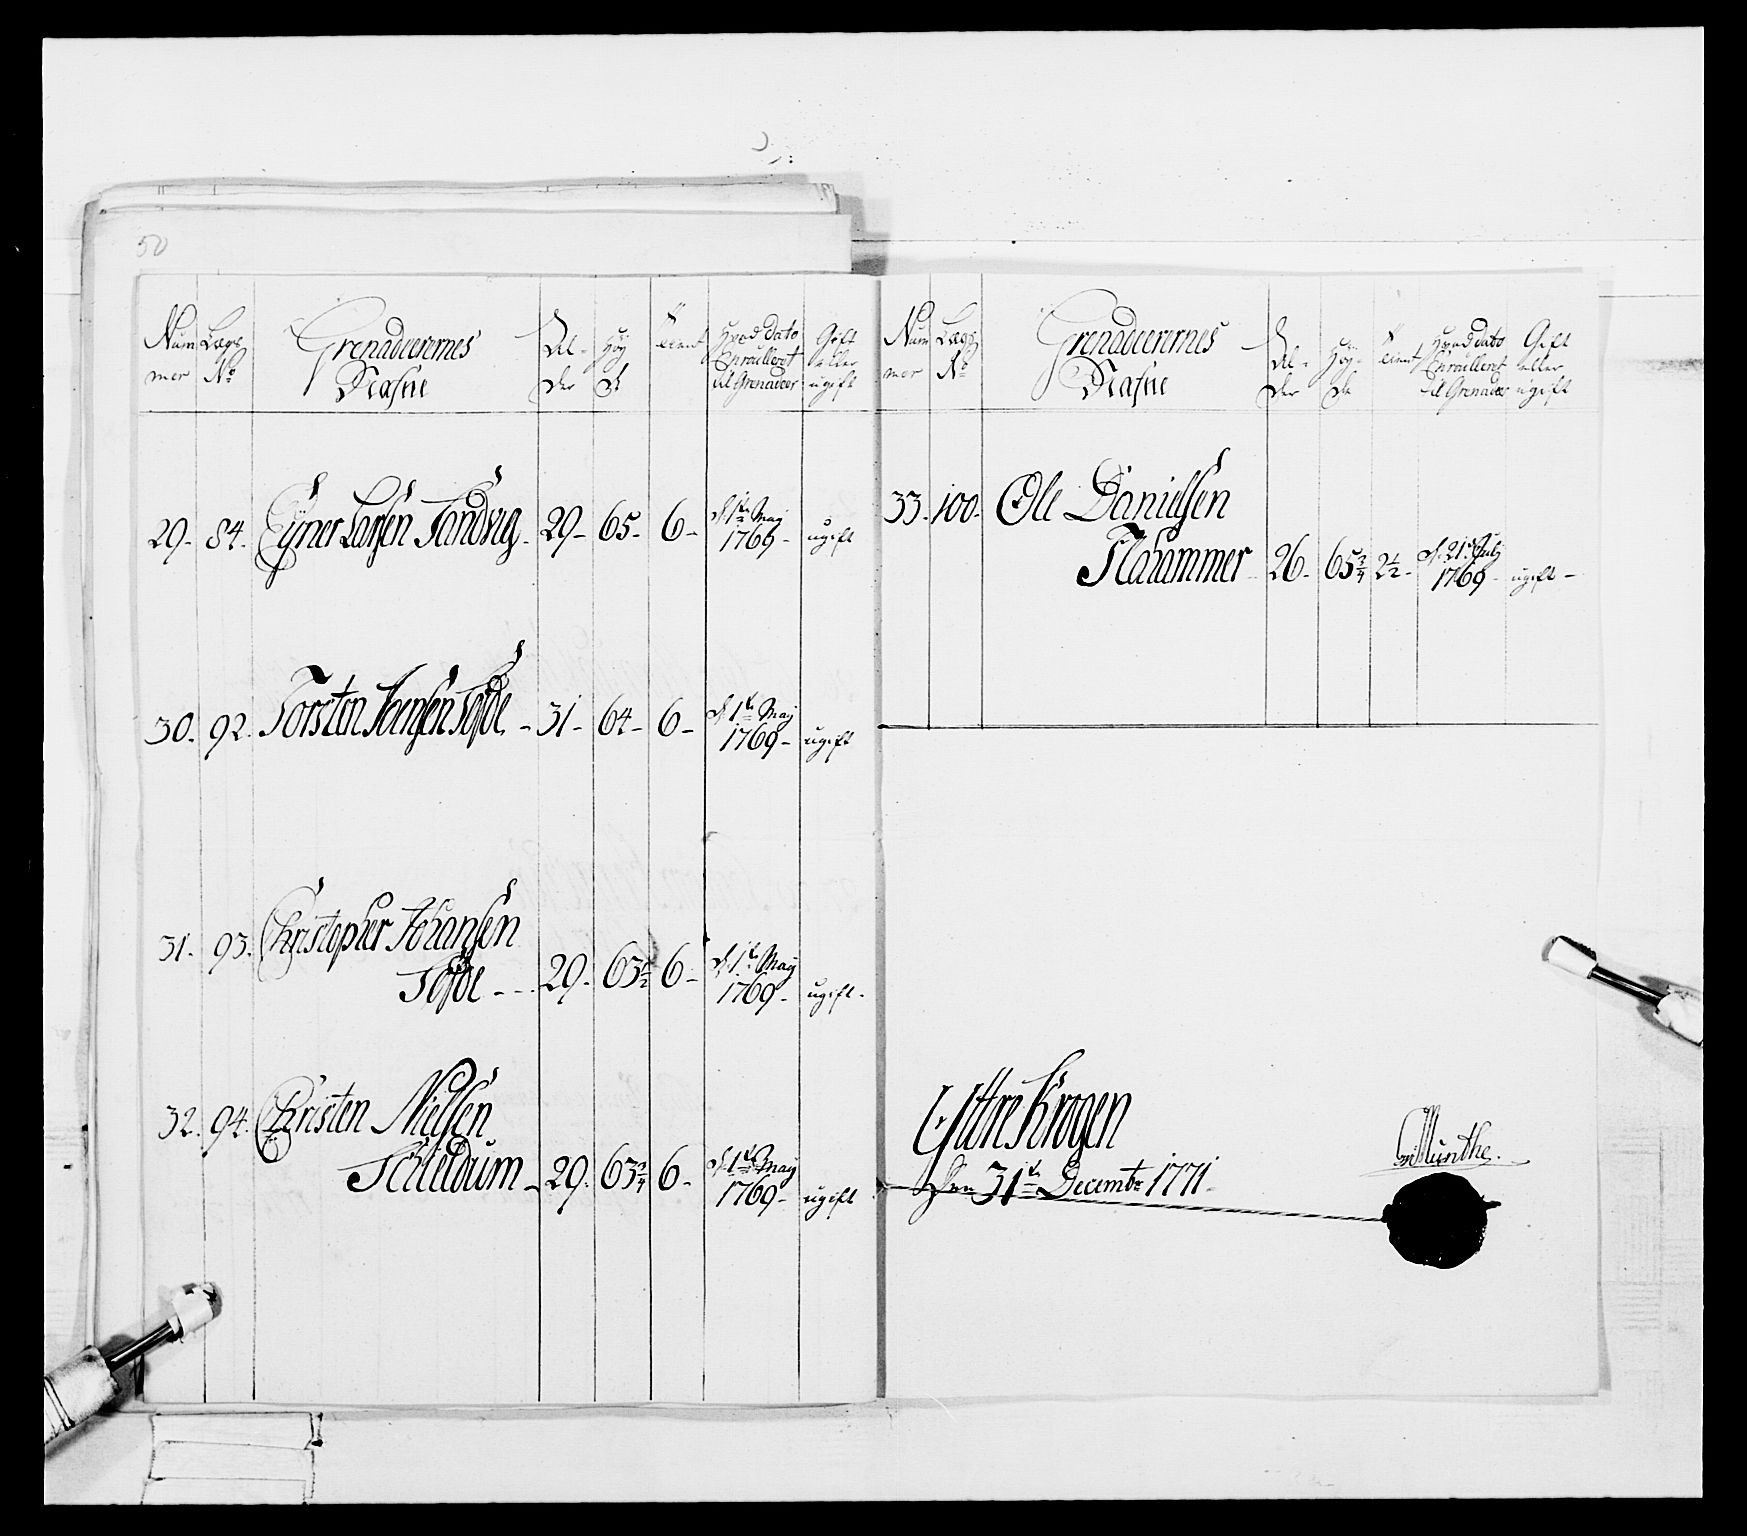 50
Num mer
Lægs No
Grenadeerernes Nafne
Alder
Høyde
Tient
Hvad dato Enroulleret til Grenadeer
Gift eller ugift
29. 84. Eyner Larsen Sandvig. 29- 65- 6- d. 1te May 1769- ugift
30. 92. Torsten Joensen Tofde - 31- 64- 6- d. 1te May 1769- ugift
31. 93. Christopher Johansen
Tofde - - - 29- 63½ 6- d. 1te May 1769- ugift-
32. 94. Christen Nielsen
Schieldum - 29. 63¾ 6- d. 1te May 1769- ugift
Num mer
Lægs No
Grenadeerernes Nafne
Alder
Høyde
Tient
Hvad dato Enroulleret til Grenadeer
Gift eller ugift
33. 100. Ole Danielsen
Flahammer 26. 65¾ 2½- d. 21de July 1769- ugift-
Yttre Krogen
Den 31te Decembr 1771.
Munthe.